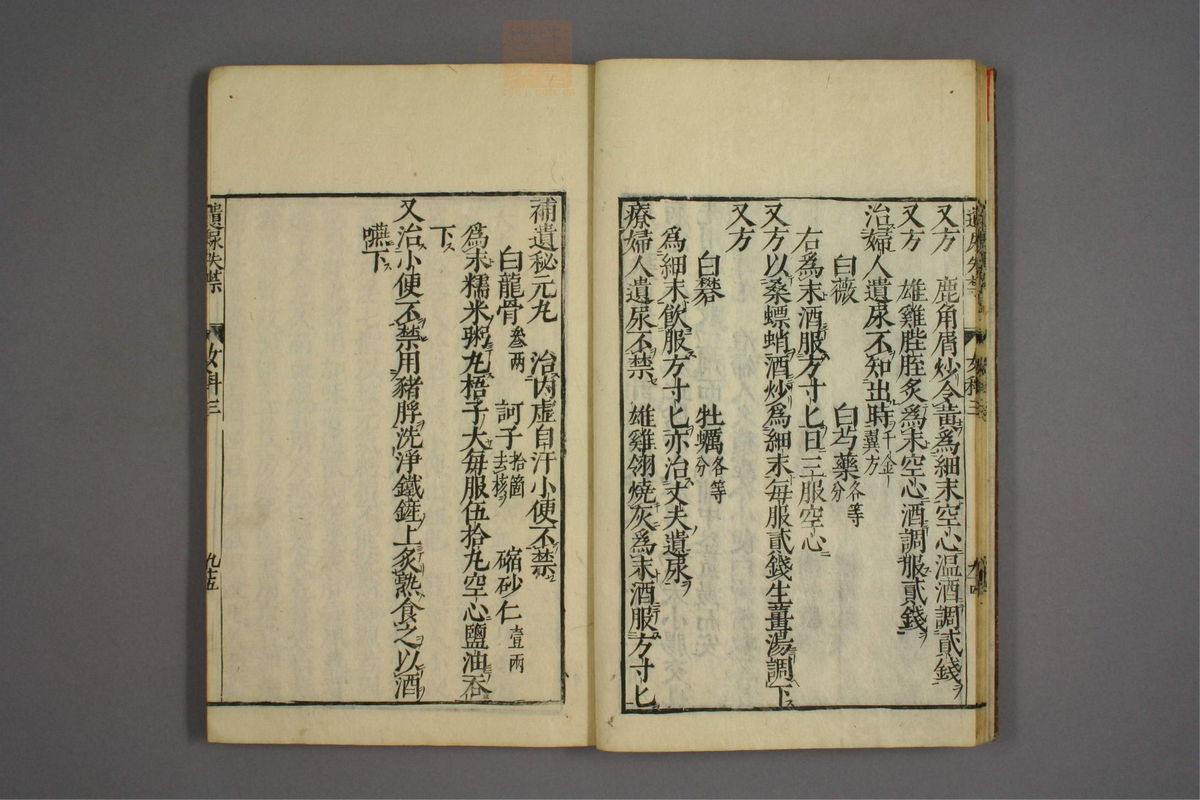 又方　鹿角屑炒令黃爲細末空心温酒調貳錢
又方　雄雞䏶胵炙爲末空心酒調服貳錢
治婦人遺尿不知出時千金翼方
白薇　白芍藥各等分
右爲末酒服方寸匕日三服空心
又方以桑螵蛸酒炒爲細末每服貳錢生薑湯調下
又方
白礬　牡蠣各等分
爲細末飲服方寸匕亦治丈夫遺尿
療婦人遺尿不禁　雄雞翎燒灰爲末酒服方寸匕
遺尿失禁　女科三
補遺秘元丸　治內虛自汗小便不禁
白龍骨叄兩　訶子拾箇去核　縮砂仁壹兩
爲末糯米粥丸梧子大每服伍拾丸空心鹽油吞
下
又治小便不禁用豬脬洗淨鐵鏟上炙熟食之以酒
嚥下
遺尿失禁　女科三　九十五